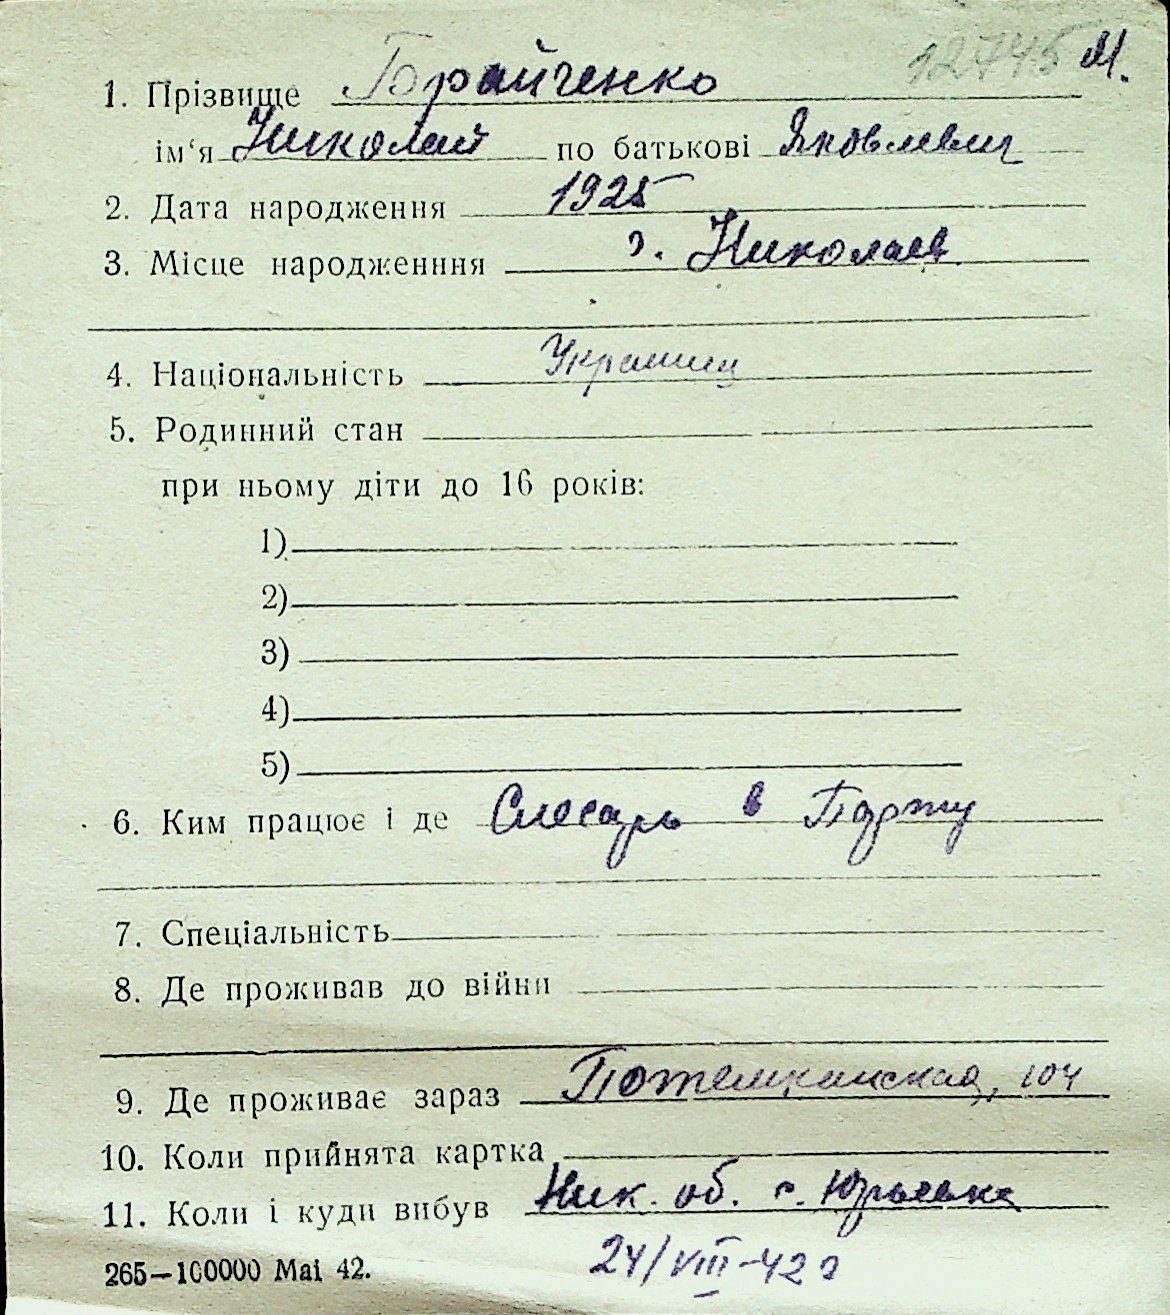 12745 М.
1. Прізвище Брайченко
ім‘я Николай по батькові Яковлевич
2. Дата народження 1925
3. Місце народженння г. Николаев.
4. Національність Украинец
5. Родинний стан
при ньому діти до 16 років:
1)
2)
3)
4)
5)
6. Ким працює і де Слесарь в Порту
7. Спеціальність
8. Де проживав до війни
9. Де проживає зараз Потемкинская, 104
10. Коли прийнята картка
11. Коли і куди вибув Ник. об. с. Юрьевка
265—100000 Mai 42. 24/VIII-42 г